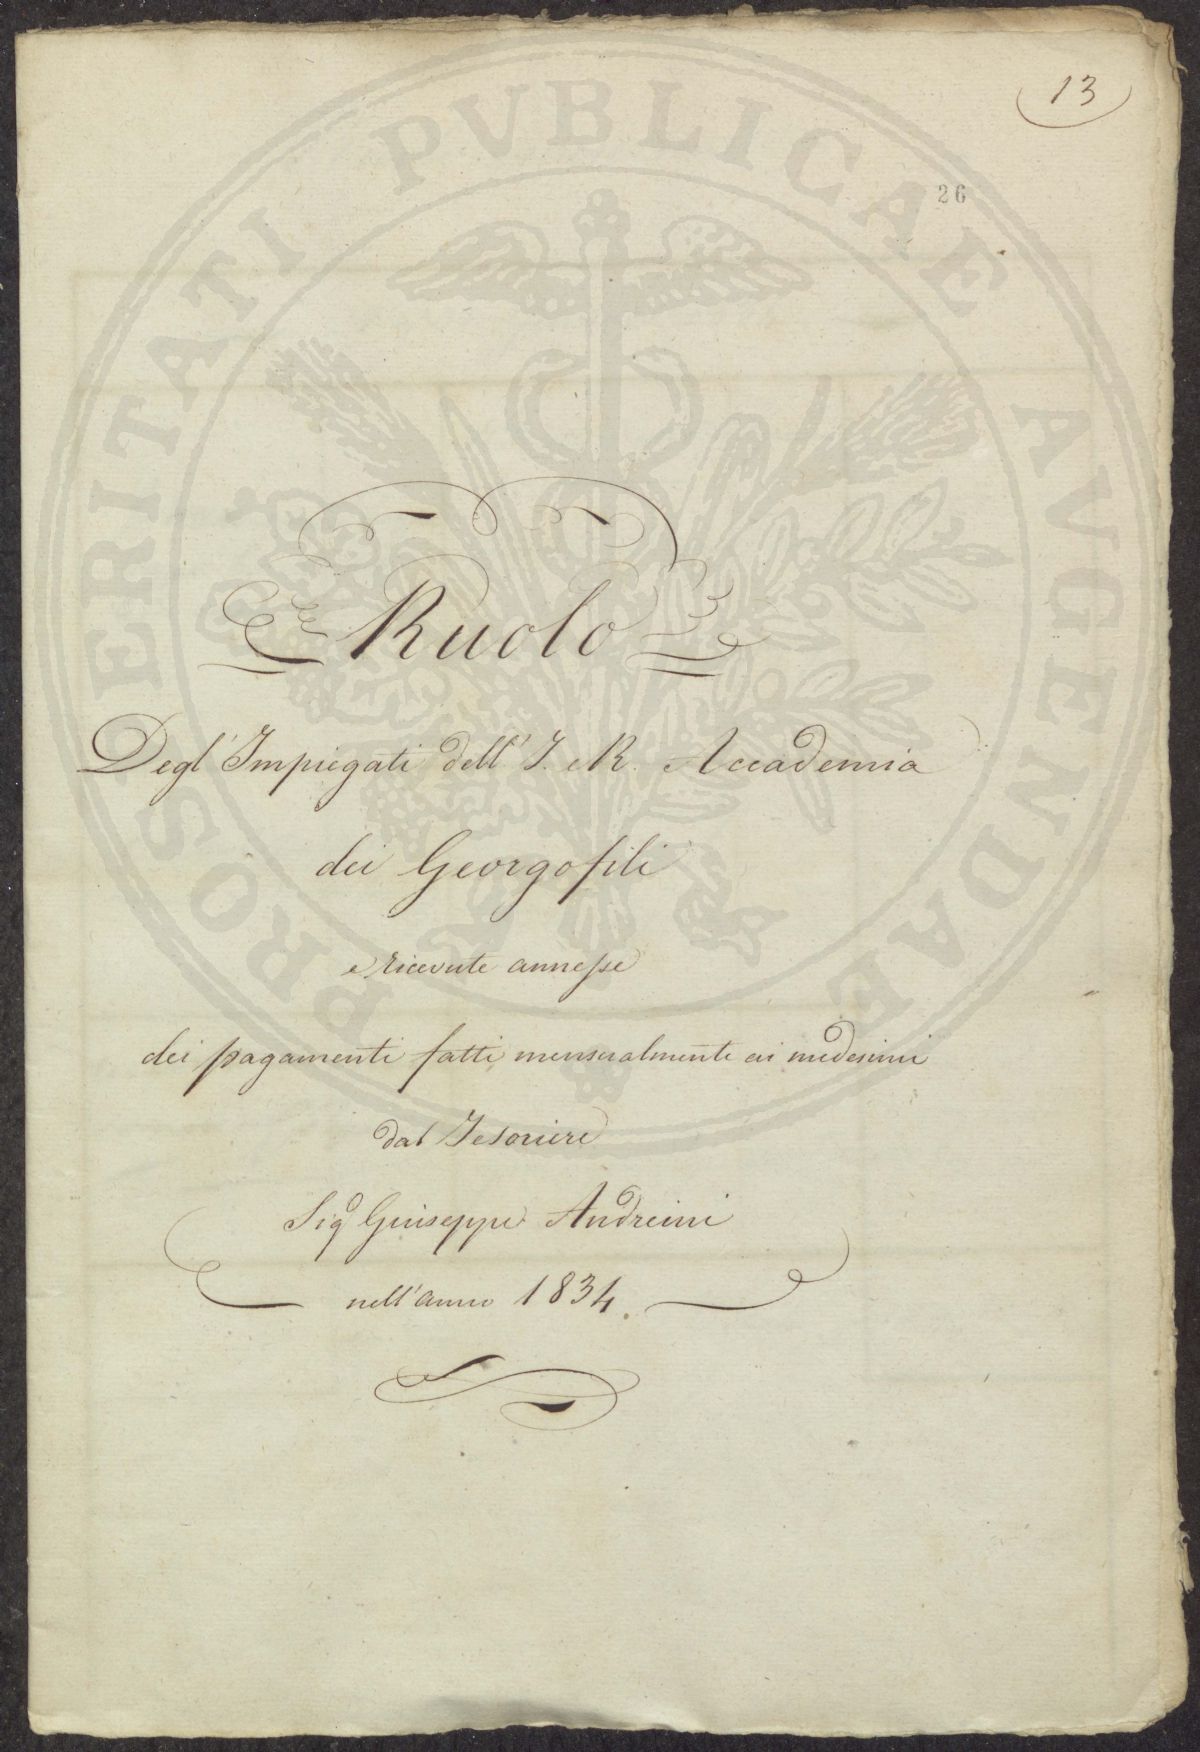 13
26
PROSPERITATI PVBLICAE AVGENDAE
Ruolo
Degl'Impiegati dell'I. e R. Accademia
dei Georgofili
e ricevute annesse
dei pagamenti fatti mensualmente ai medesimi
dal Tesoriere
Sig Giuseppe Andreini
nell'anno 1834.